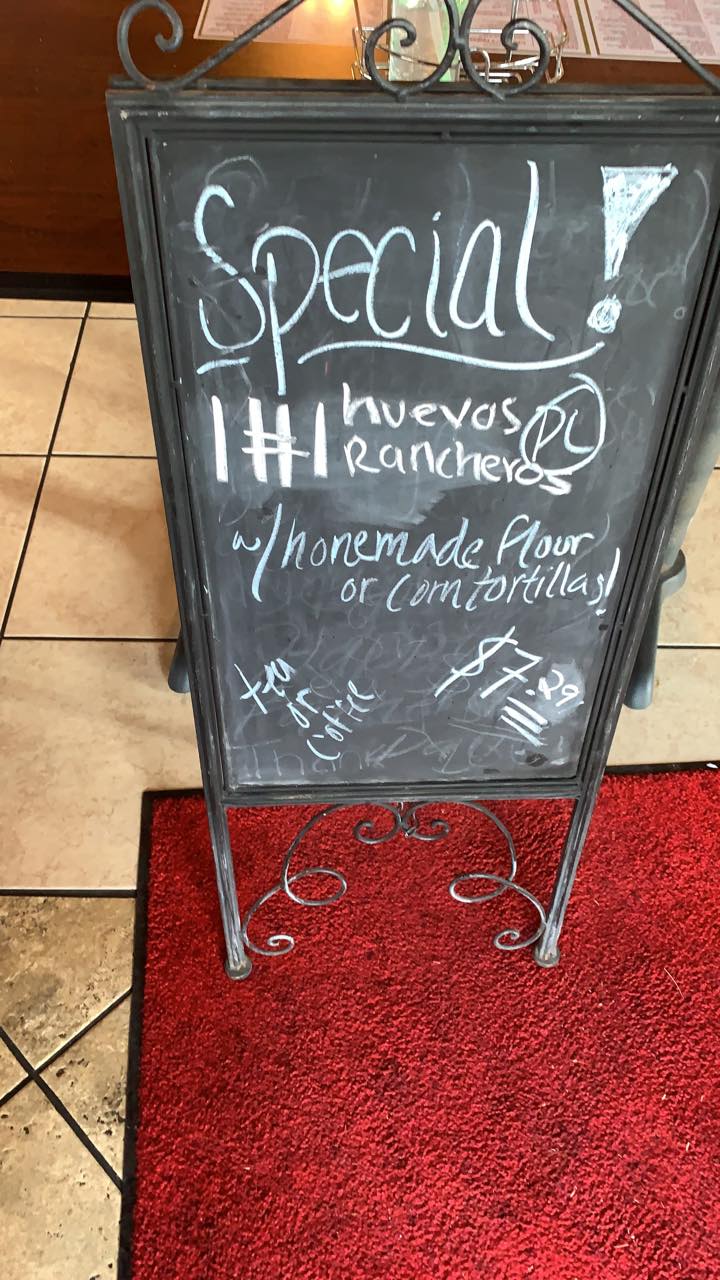 Special!
1#1 huevos PL
Rancheros
w/homemade flour
or corn tortillas!
$7.29
tea
or
coffee